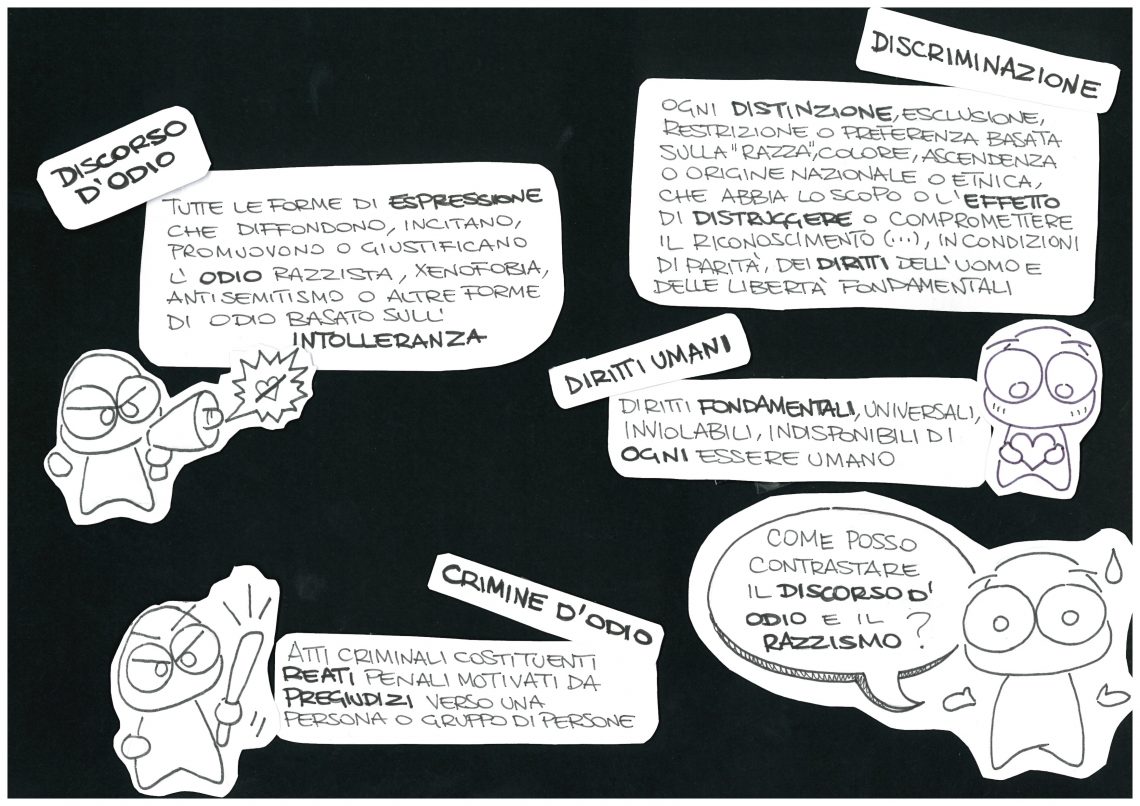 DISCORSO
D'ODIO
TUTTE LE FORME DI ESPRESSIONE
CHE DIFFONDONO, INCITANO,
PROMUOVONO O GIUSTIFICANO
L'ODIO RAZZISTA, XENOFOBIA,
ANTISEMITISMO O ALTRE FORME
DI ODIO BASATO SULL'
INTOLLERANZA
DISCRIMINAZIONE
OGNI DISTINZIONE, ESCLUSIONE,
RESTRIZIONE O PREFERENZA BASATA
SULLA "RAZZA", COLORE, ASCENDENZA
O ORIGINE NAZIONALE O ETNICA,
CHE ABBIA LO SCOPO O L'EFFETTO
DI DISTRUGGERE O COMPROMETTERE
IL RICONOSCIMENTO (...), IN CONDIZIONI
DI PARITÀ, DEI DIRITTI DELL'UOMO E
DELLE LIBERTÀ FONDAMENTALI
DIRITTI UMANI
DIRITTI FONDAMENTALI, UNIVERSALI,
INVIOLABILI, INDISPONIBILI DI
OGNI ESSERE UMANO
CRIMINE D'ODIO
ATTI CRIMINALI COSTITUENTI
REATI PENALI MOTIVATI DA
PREGIUDIZI VERSO UNA
PERSONA O GRUPPO DI PERSONE
COME POSSO
CONTRASTARE
IL DISCORSO D'
ODIO E IL
RAZZISMO ?